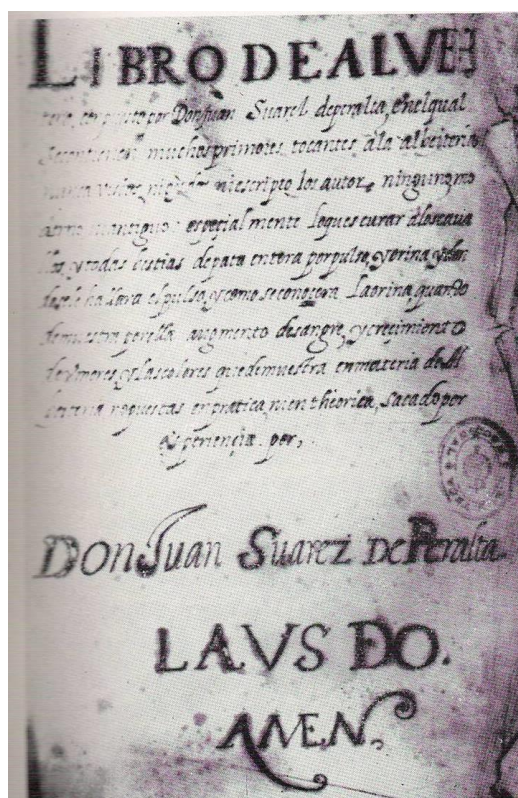 LIBRO DE ALVEI
tero, conpuesto por Don Juan Suarez de peralta, enelqual
Secontienen muchos primores tocantes ala albeiteria
nunca vistos, ni escripto los autores ningun mo
derno ni antiguo: especialmente loques curar alos cava
llos, y todas bestias depata entera porpulso, y orina y don
desele hallara elpulso, y como seconosera Laorina, quando
demuestra porella augmento desangre, y crecimiento
de Vmores, y lascolores quedemuestra enmateria de Al
beiteria nopuestas enpratica, nien theorica, Sacado por
esperiencia por,
DON Juan Suarez DE Peralta
LAVS DO.
AMEN.